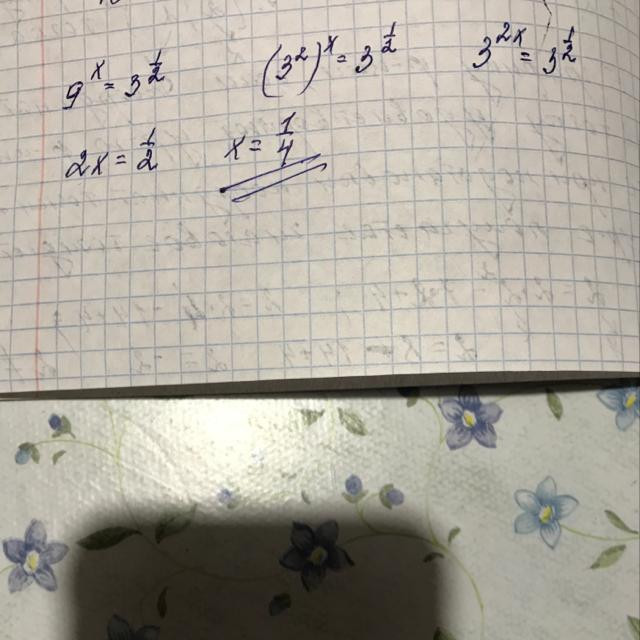 9^x = 3^{1/2} (3^2)^x = 3^{1/2} 3^{2x} = 3^{1/2}
2x = 1/2 x = 1/4